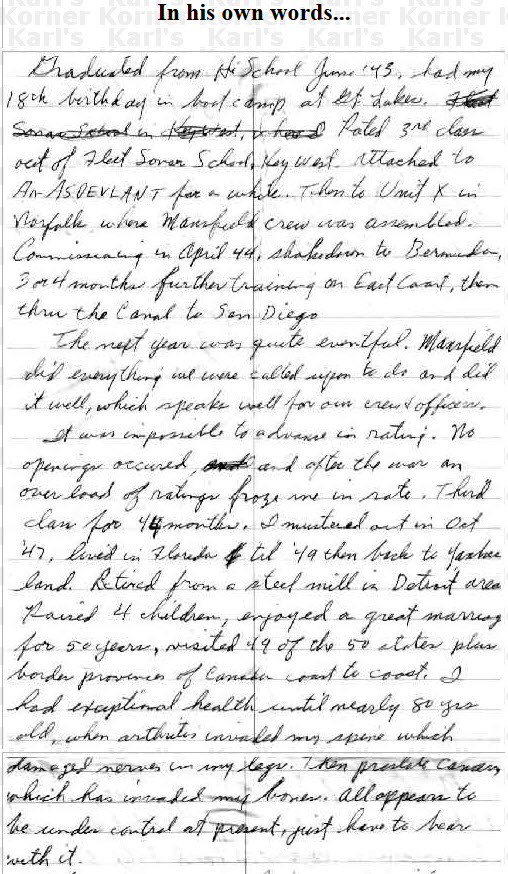 Korner Korner Korner Korner Korner
Karl's Karl's Karl's Karl's Karl's
In his own words...
Graduated from Hi School June '43, had my
18th birthday in boot camp at Gt Lakes. Fleet
Sonar School in Key West, Rated 3rd class
out of Fleet Sonar School, Key West. Attached to
An ASDEVLANT for a while. Then to Unit X in
Norfolk where Mansfield crew was assembled.
Commissioning in April 44, shakedown to Bermuda,
3 or 4 months further training on East Coast, then
thru the Canal to San Diego
The next year was quite eventful. Mansfield
did everything we were called upon to do and did
it well, which speaks well for our crew & officers.
It was impossible to advance in rating. No
openings occured, and and after the war an
over load of ratings froze me in rate. Third
class for 44 months. I mustered out in Oct
'47, lived in Florida til '49 then back to Yankee
land. Retired from a steel mill in Detroit area
Raised 4 children, enjoyed a great marriag
for 50 years, visited 49 of the 50 states plus
border provinces of Canada coast to coast. I
had exceptional health until nearly 80 yrs
old, when arthritis invaded my spine which
damaged nerves in my legs. Then prostate cancer
which has invaded my bones. All appears to
be under control at present, just have to bear
with it.